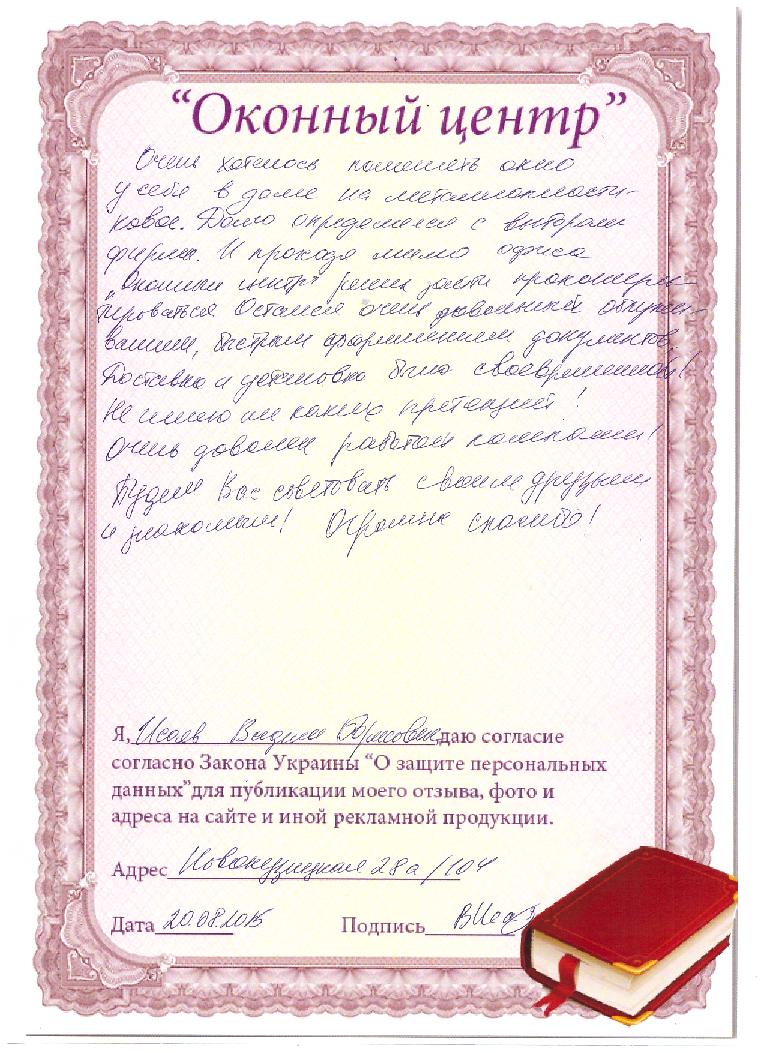 “Оконный центр”
Очень хотелось поменять окно
у себя в доме на металлопласти-
ковое. Долго определялся с выбором
фирмы. И проходя мимо офиса
„Оконный центр" решил зайти проконсуль-
тироваться. Остался очень довольный обслужи-
ванием, быстрым оформлением документов.
Доставка и установка была своевременной!
Не имею ни каких претензий!
Очень доволен работой компании!
Будем Вас советовать своим друзьям
и знакомым! Огромное спасибо!
Я, Исаев Вадим Борисович даю согласие
согласно Закона Украины “О защите персональных
данных”для публикации моего отзыва, фото и
адреса на сайте и иной рекламной продукции.
Адрес Новокузнецкая 28а/104
Дата 20.08.2015 Подпись